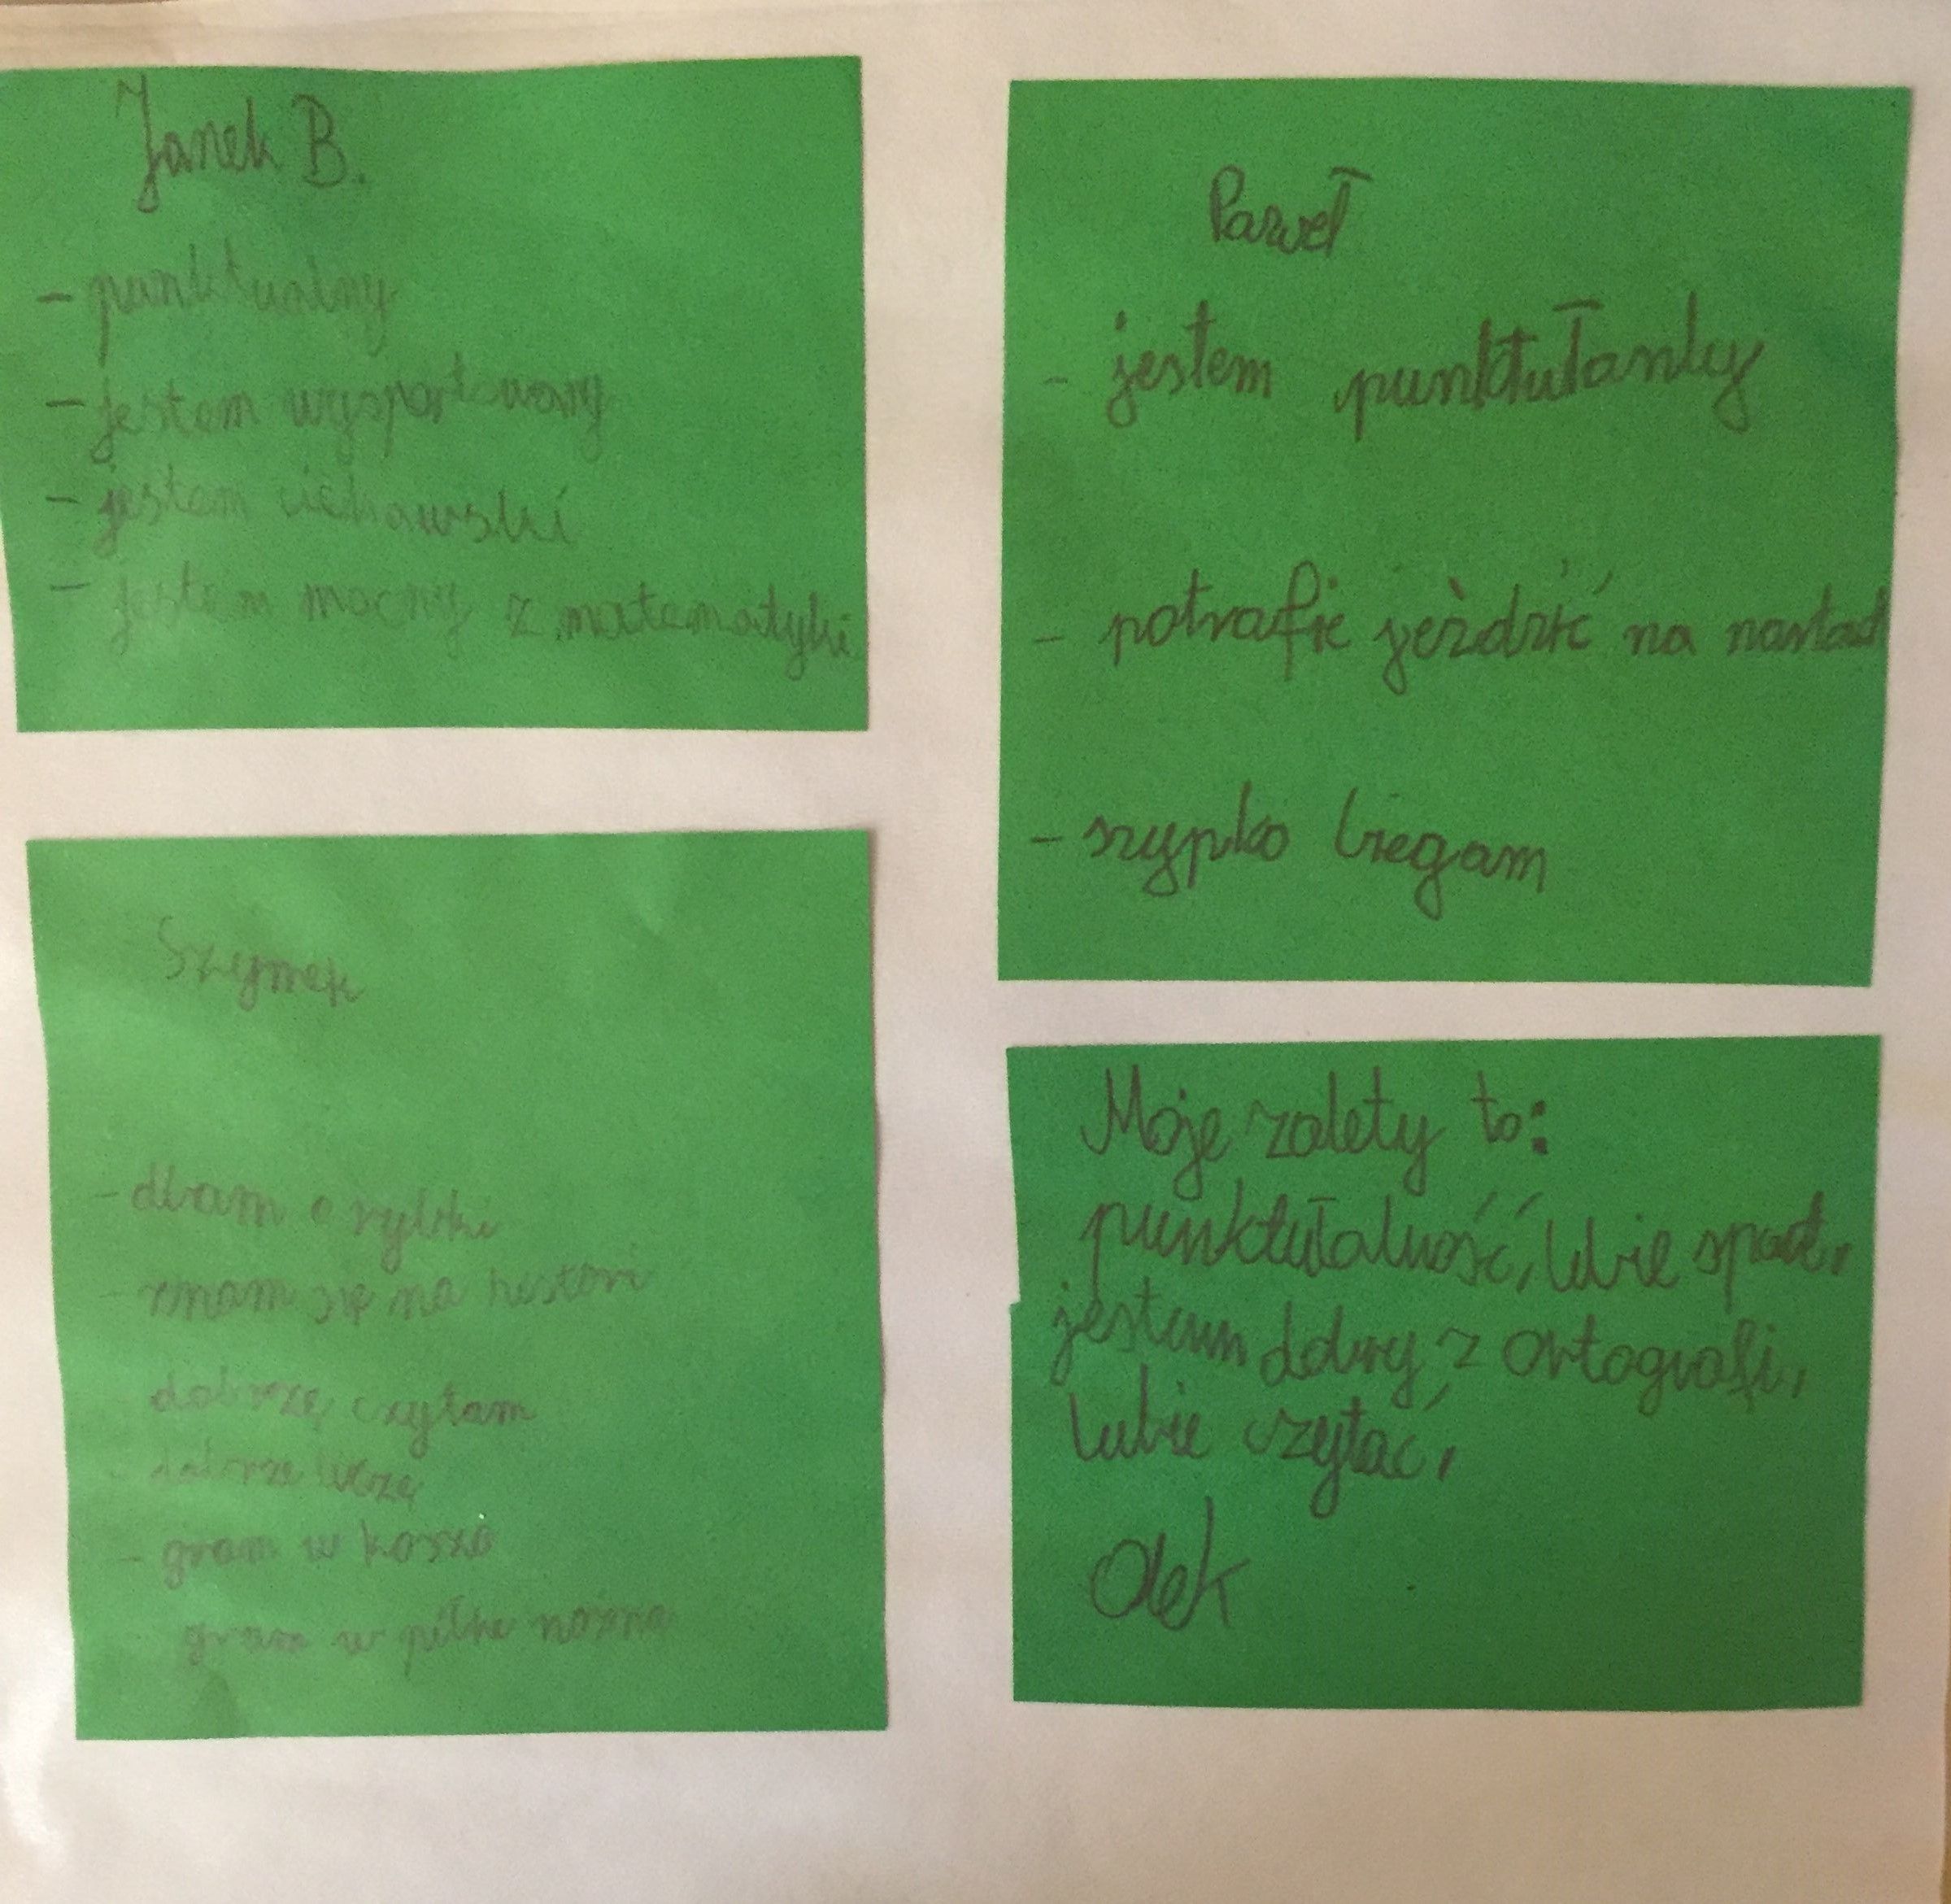 Janek B.
- punktualny
- jestem wysportowany
- jestem ciekawski
- jestem mocny z matematyki
Paweł
- jestem punktułanly
- potrafie jeździć na nartach
- szypko biegam
Szymek
- dbam o rybki
- znam się na histori
- dobrzę czytam
- dobrze liczę
- gram w kosza
gram w piłke nożna
Moje zalety to:
punktułalność, lubie spać,
jestem dobry z ortografi,
lubie czytać,
Olek